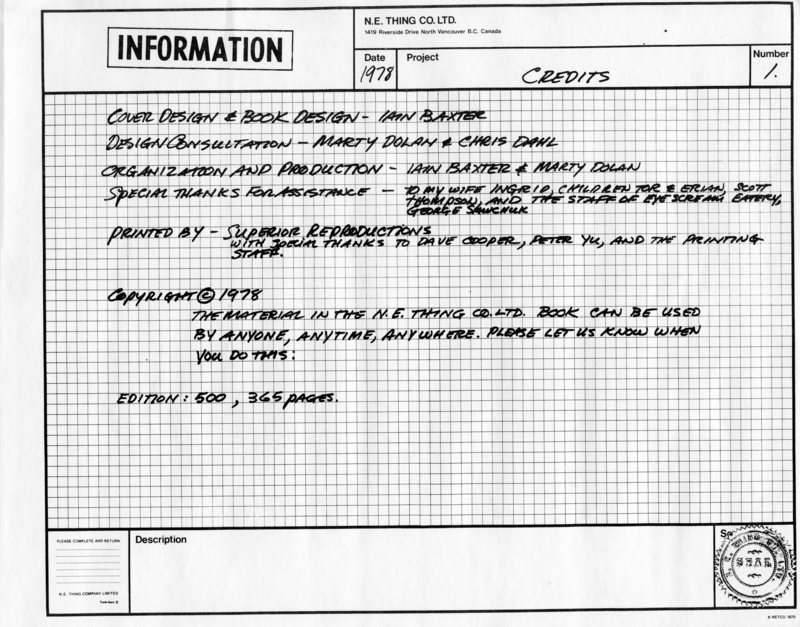 INFORMATION
N.E. THING CO. LTD.
1419 Riverside Drive North Vancouver B.C. Canada
Date
1978
Project
CREDITS
Number
1.
COVER DESIGN & BOOK DESIGN - IAIN BAXTER
DESIGN CONSULTATION - MARTY DOLAN & CHRIS DAHL
ORGANIZATION AND PRODUCTION - IAIN BAXTER & MARTY DOLAN
SPECIAL THANKS FOR ASSISTANCE - TO MY WIFE INGRID, CHILDREN TOR & ERIAN, SCOTT
THOMPSON, AND THE STAFF OF EYE SCREAM EATERY,
GEORGE SAWCHUK
PRINTED BY - SUPERIOR REPRODUCTIONS
WITH SPECIAL THANKS TO DAVE COOPER, PETER YU, AND THE PRINTING
STAFF.
COPYRIGHT © 1978
THE MATERIAL IN THE N.E. THING CO. LTD. BOOK CAN BE USED
BY ANYONE, ANYTIME, ANYWHERE. PLEASE LET US KNOW WHEN
YOU DO THIS:
EDITION: 500, 365 PAGES.
PLEASE COMPLETE AND RETURN
N.E. THING COMPANY LIMITED
Description
SEAL
© NETCO 1970